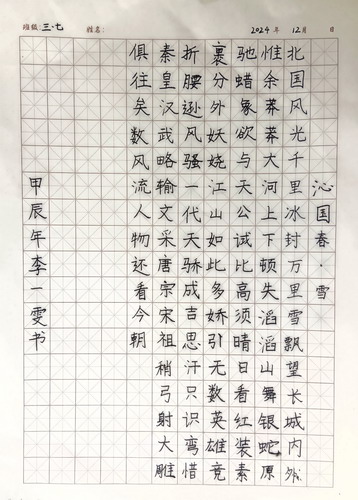 班级:三·七 姓名: 2024年 12月 日
沁国春·雪
北国风光千里冰封万里雪飘望长城内外
惟余莽莽大河上下顿失滔滔山舞银蛇原
驰蜡象欲与天公试比高须晴日看红装素
裹分外妖娆江山如此多娇引无数英雄竞
折腰逊风骚一代天骄成吉思汗只识弯惜
秦皇汉武略输文采唐宗宋祖稍弓射大雕
俱往矣数风流人物还看今朝
甲辰年李一雯书